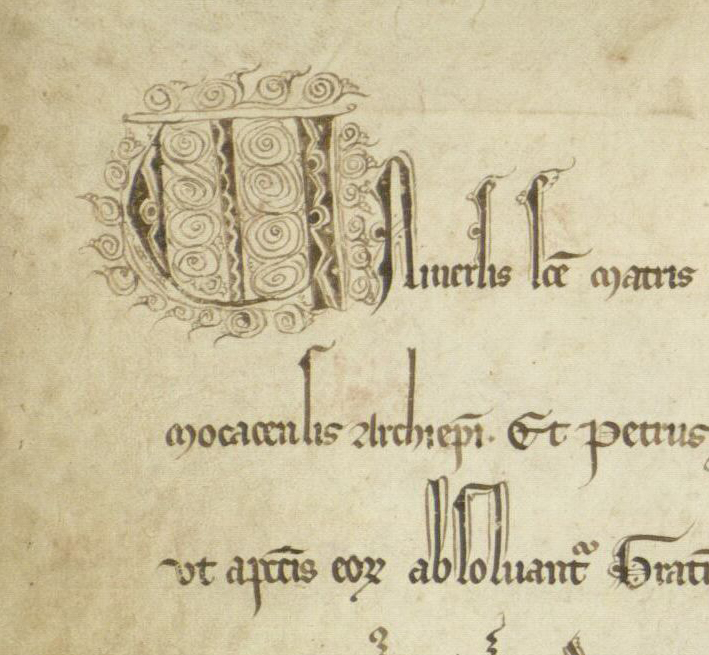 Uniuersis sc̄e matris
mocacensis Archiep̄i. Et Petrus
vt ap̄cis eoꝝ absoluantᷓ Grati